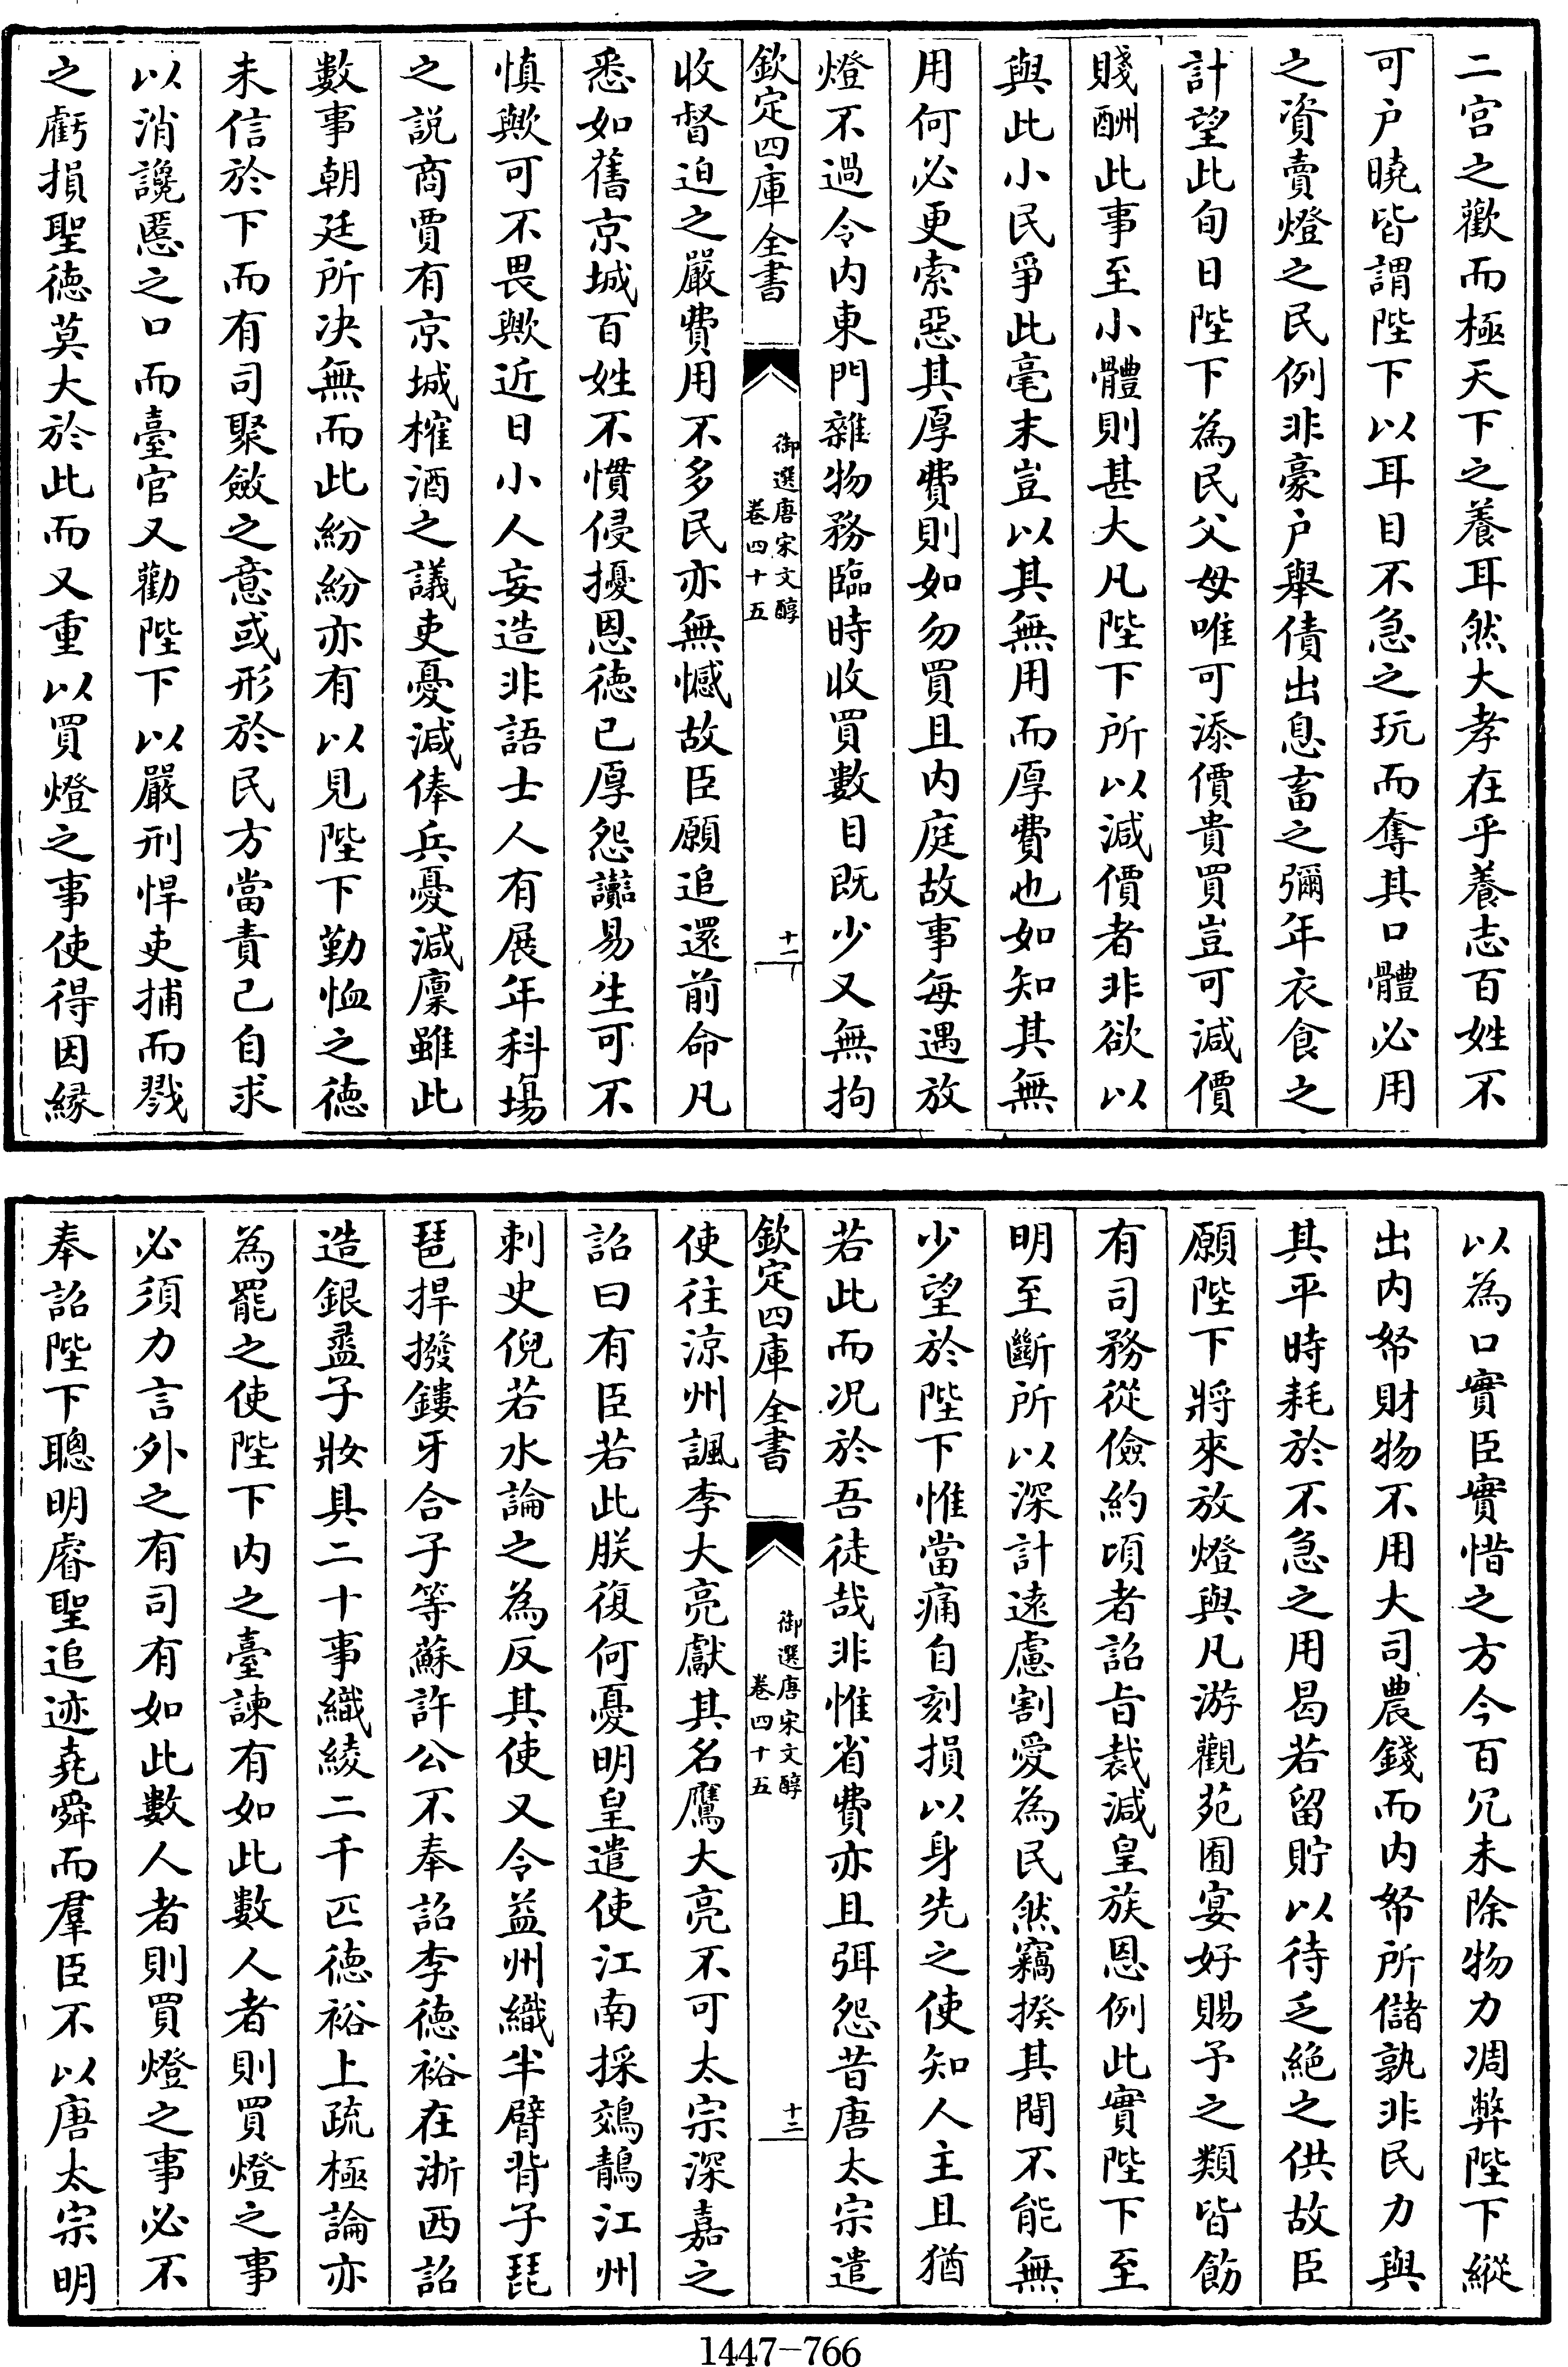 二宫之歡而極天下之養耳然大孝在乎養志百姓不
可户曉皆謂陛下以耳目不急之玩而奪其口體必用
之資賣燈之民例非豪户舉債出息畜之彌年衣食之
計望此旬日陛下為民父母唯可添價貴買豈可減價
賤酬此事至小體則甚大凡陛下所以減價者非欲以
與此小民爭此毫末豈以其無用而厚費也如知其無
用何必更索惡其厚費則如勿買且内庭故事每遇放
燈不過令内東門雜物務臨時收買數目既少又無拘
欽定四庫全書
御選唐宋文醇
卷四十五
十一
收督迫之嚴費用不多民亦無憾故臣願追還前命凡
悉如舊京城百姓不慣侵擾恩徳已厚怨讟易生可不
慎歟可不畏歟近日小人妄造非語士人有展年科塲
之説商賈有京城榷酒之議吏憂減俸兵憂減廩雖此
數事朝廷所决無而此紛紛亦有以見陛下勤恤之徳
未信於下而有司聚斂之意或形於民方當責己自求
以消讒慝之口而臺官又勸陛下以嚴刑悍吏捕而戮
之虧損聖徳莫大於此而又重以買燈之事使得因縁
以為口實臣實惜之方今百冗未除物力凋弊陛下縱
出内帑財物不用大司農錢而内帑所儲孰非民力與
其平時耗於不急之用曷若留貯以待乏絶之供故臣
願陛下將來放燈與凡游觀苑囿宴好賜予之類皆飭
有司務從儉約頃者詔㫖裁減皇族恩例此實陛下至
明至斷所以深計逺慮割愛為民然竊揆其間不能無
少望於陛下惟當痛自刻損以身先之使知人主且猶
若此而况於吾徒哉非惟省費亦且弭怨昔唐太宗遣
欽定四庫全書
御選唐宋文醇
卷四十五
十二
使往涼州諷李大亮獻其名鷹大亮不可太宗深嘉之
詔曰有臣若此朕復何憂明皇遣使江南採鵁鶄江州
刺史倪若水論之為反其使又令益州織半臂背子琵
琶捍撥鏤牙合子等蘇許公不奉詔李徳裕在浙西詔
造銀盝子妝具二十事織綾二千匹徳裕上疏極論亦
為罷之使陛下内之臺諫有如此數人者則買燈之事
必須力言外之有司有如此數人者則買燈之事必不
奉詔陛下聰明睿聖追迹堯舜而羣臣不以唐太宗明
1447-766